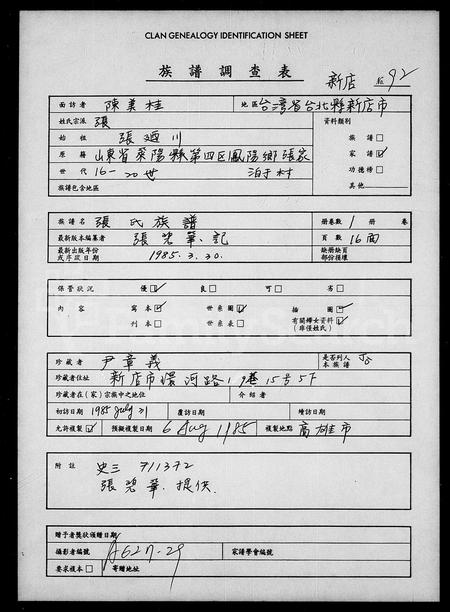 CLAN GENEALOGY IDENTIFICATION SHEET
族譜調查表
新店 № 92
面訪者 陳美桂 地區 台灣省台北縣新店市
姓氏宗派 張 資料類別
始祖 張廻川 族譜□
原籍 山東省萊陽縣第四區鳳陽鄉張家泊子村 家譜☑
世代 16-20世 功德榜□
族譜包含地區 其他
族譜名 張氏族譜 冊卷數 1 冊 卷
最新版本編纂者 張 華、記 頁數 16面
最新出版年份或序跋日期 1985.3.30. 缺冊缺頁部份損壞
保管狀況 優☑ 良□ 可□ 劣□
內容 寫本☑ 世系圖☑ 插圖☑
刊本□ 世系表□ 有關婦女資料☑(非僅姓氏)
珍藏者 尹章義 是否列入本族譜 否
珍藏者住址 新店市環河路19巷15号5F
珍藏者在(家)宗族中之地位 介紹者
初訪日期 1985 July 31 覆訪日期 續訪日期
允許複製☑ 預擬複製日期 6 Aug 1985 複製地點 高雄市
附註 史三 711372
張 華.提供.
贈予者獎狀頒贈日期
攝影者編號 A627-29 家譜學會編號
要求複本□ 寄贈地址